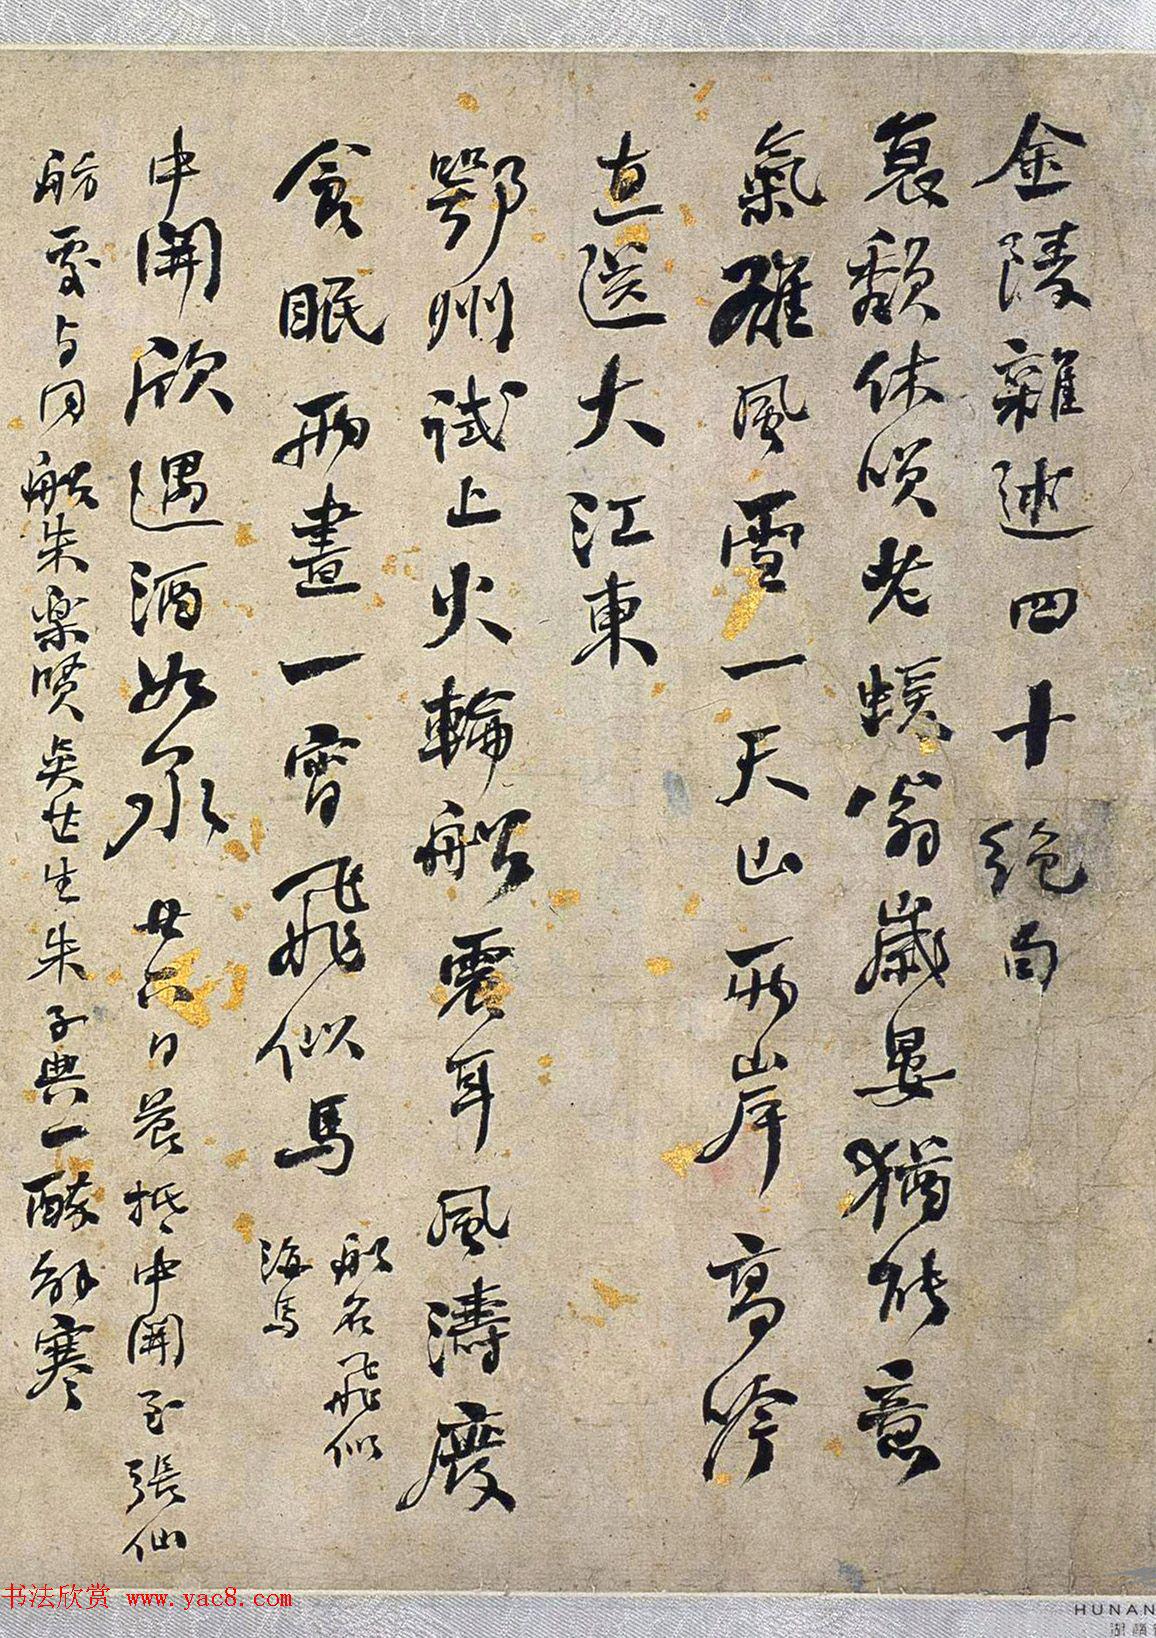 金陵雜述四十絶句
衰颓休唉老蝯翁歲晏猶能意
氣雄風雪一天山兩岸高吟
直送大江東
鄂州試上火輪船震耳風濤廢
食眠兩晝一宵飛似馬
船名飛似
海馬
中關欣遇酒如泉廿六日晨抵中關至張仙
舫處与同船朱樂賢吳芷生朱子典一醉解寒
书法欣赏 www.yac8.com
HUNAN
湖